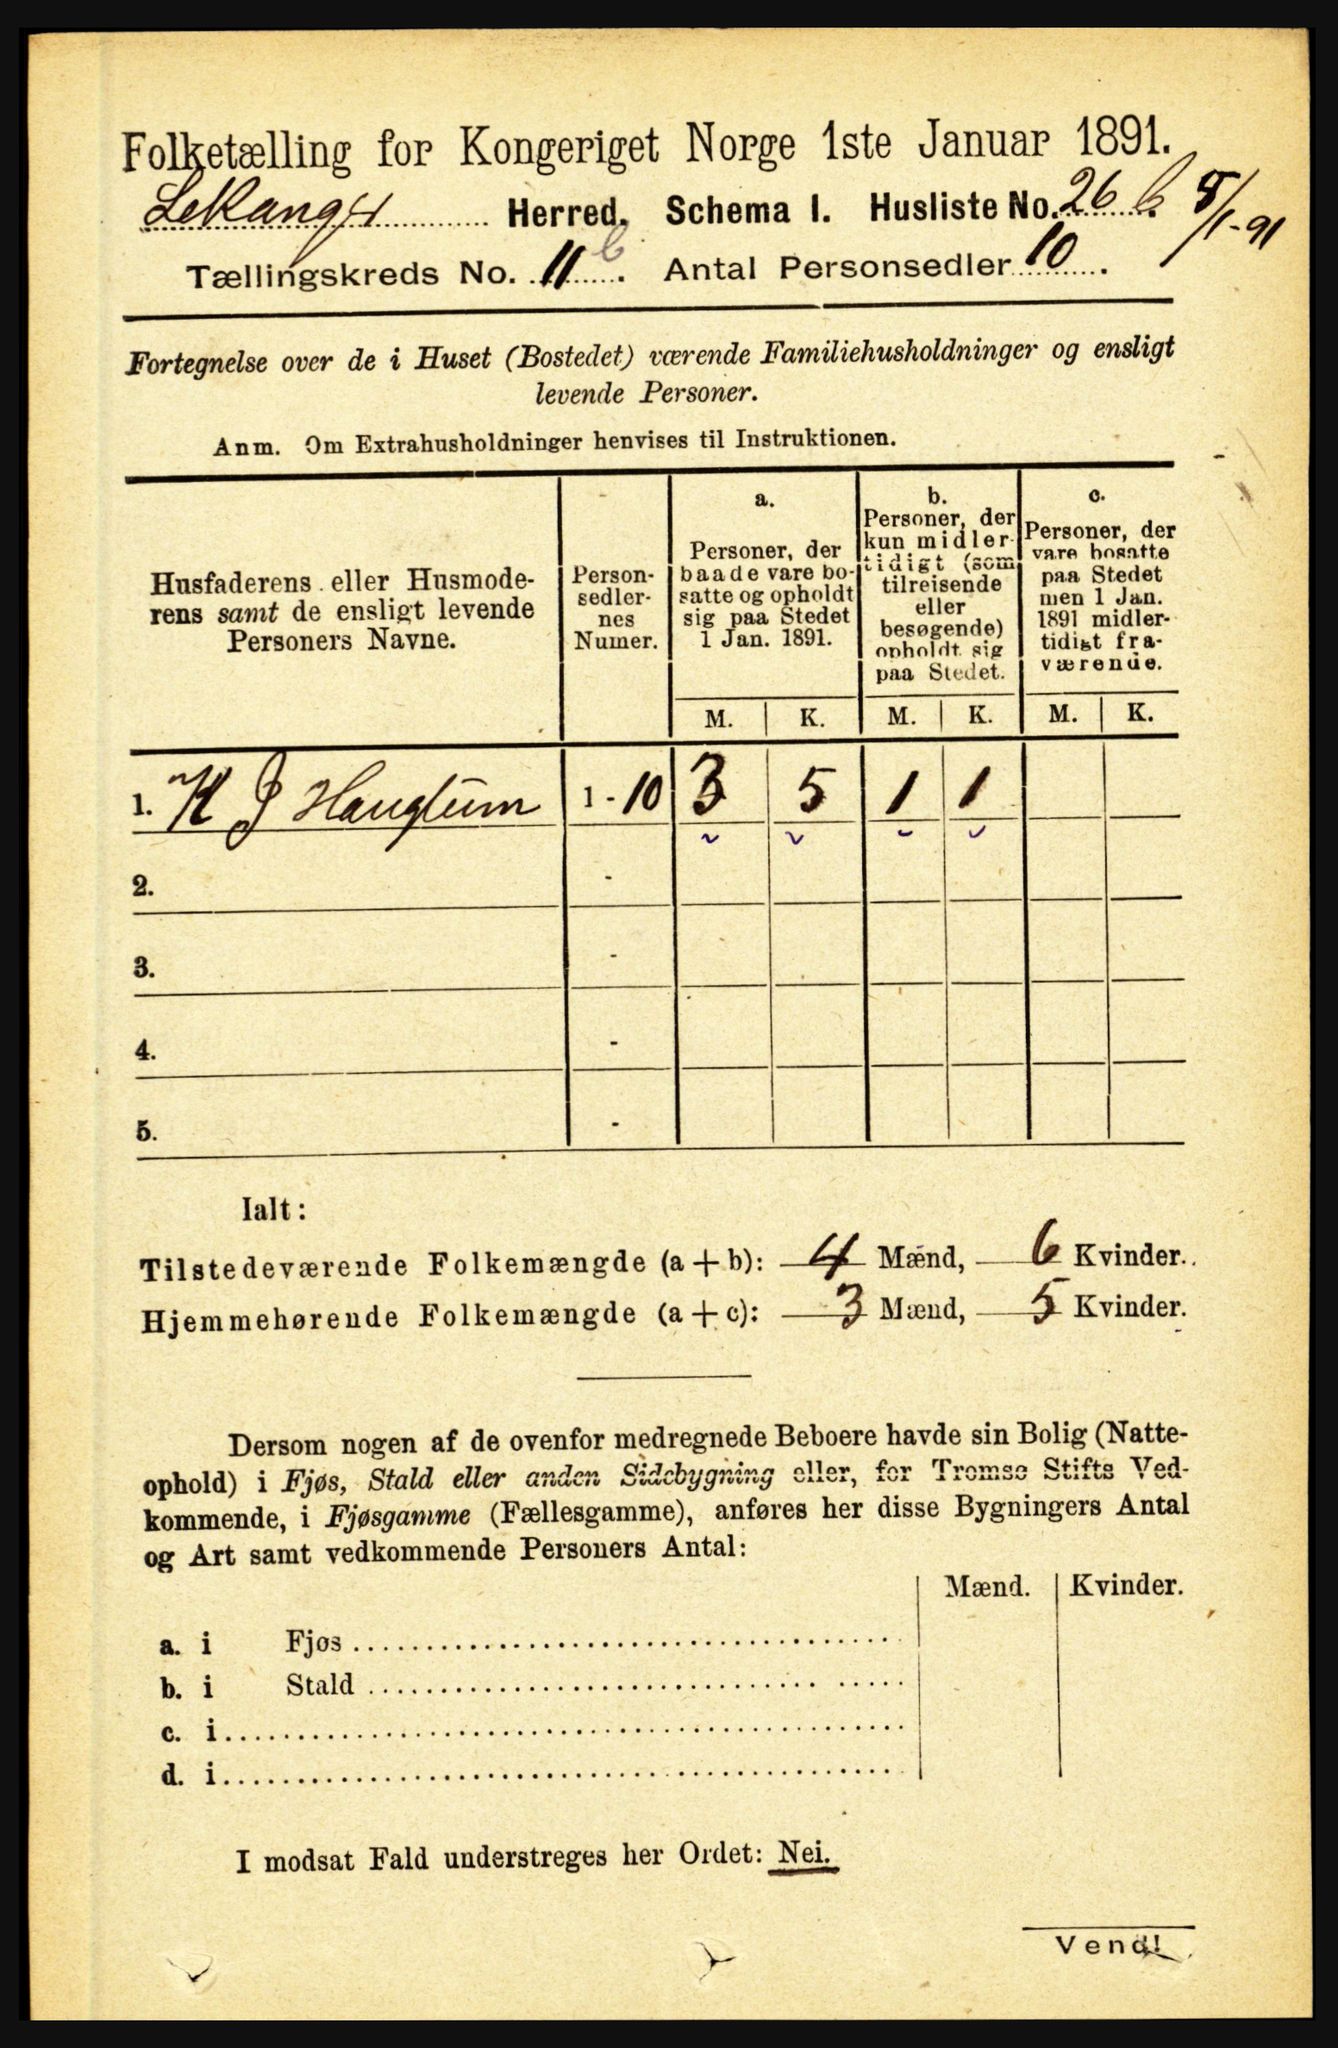 Folketælling for Kongeriget Norge 1ste Januar 1891.
Lekanger Herred. Schema I. Husliste No. 26 b. 8/1-91
Tællingskreds No. 11 b. Antal Personsedler 10.
Fortegnelse over de i Huset (Bostedet) værende Familiehusholdninger og ensligt
levende Personer.
Anm. Om Extrahusholdninger henvises til Instruktionen.
Husfaderens eller Husmode-
rens samt de ensligt levende
Personers Navne.
Person-
sedler-
nes
Numer.
a.
Personer, der
baade vare bo-
satte og opholdt
sig paa Stedet
1 Jan. 1891.
b.
Personer, der
kun midler-
tidigt (som
tilreisende
eller
besøgende)
opholdt sig
paa Stedet.
c.
Personer, der
vare bosatte
paa Stedet
men 1 Jan.
1891 midler-
tidigt fra-
værende.
M. K. M. K. M. K.
1. K J Hauglum 1 - 10 3 5 1 1
2. -
3. -
4. -
5. -
Ialt:
Tilstedeværende Folkemængde (a + b): 4 Mænd, 6 Kvinder.
Hjemmehørende Folkemængde (a + c): 3 Mænd, 5 Kvinder.
Dersom nogen af de ovenfor medregnede Beboere havde sin Bolig (Natte-
ophold) i Fjøs, Stald eller anden Sidebygning eller, for Tromsø Stifts Ved-
kommende, i Fjøsgamme (Fællesgamme), anføres her disse Bygningers Antal
og Art samt vedkommende Personers Antal:
Mænd. Kvinder.
a. i Fjøs
b. i Stald
c. i
d. i
I modsat Fald understreges her Ordet: Nei.
Vend!